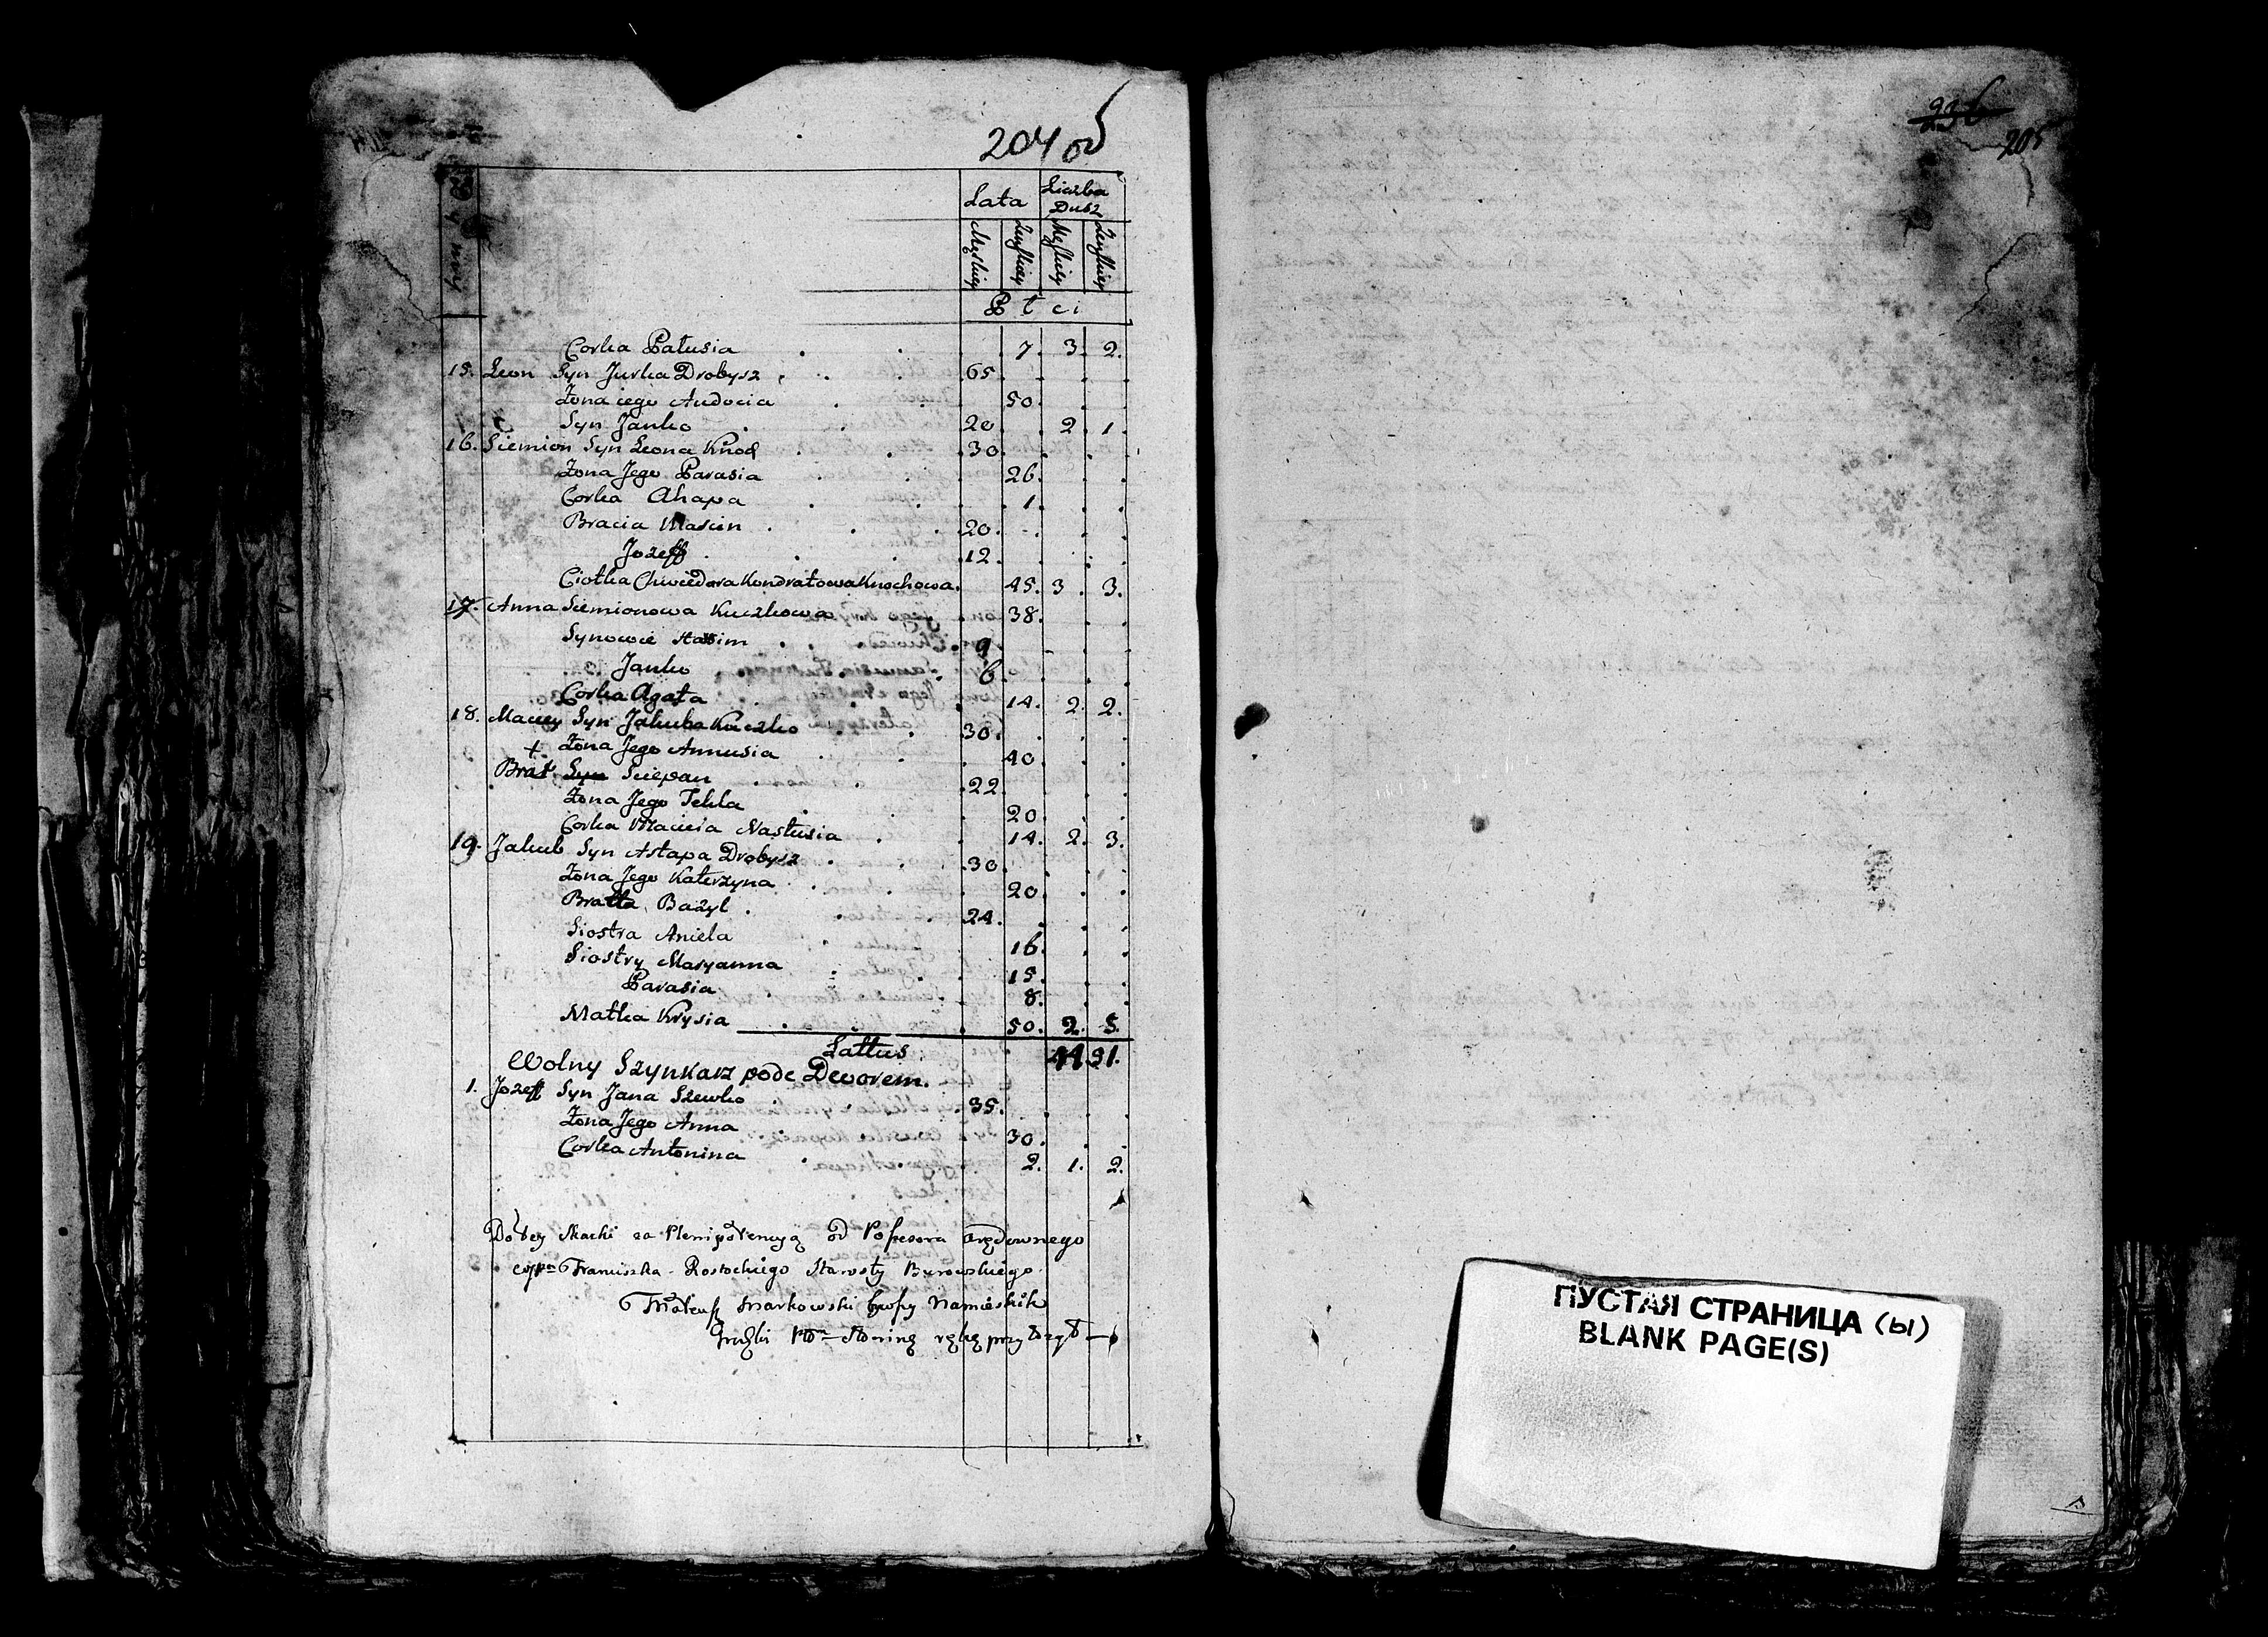 204 об
Lata Liczba Dusz
Męskiey Żeńskiey Męskiey Żeńskiey
Płci
Corka Patusia . . . 7. 3. 2.
15. Leon Syn Jurka Drobysz . . . 65
Żona iego Audocia . . 50.
Syn Janko . . 20. 2. 1.
16. Siemion Syn Leona Knod . . 30.
Żona Jego Parasia . . 26.
Corka Ahapa . . 1.
Bracia Maxim . . . 20.
Jozeff . . . 12.
Ciotka Chwiedora Kondratowa Knochowa. 45. 3. 3.
17. Anna Siemionowa Kuczkowa 38.
Synowie Maxim . . . 9
Janko . . . 6.
Corka Agata . . . 14. 2. 2.
18. Maciey Syn Jakuba Kuczko . . 30.
+ Żona Jego Annusia . . . 40.
Brat Syn Sciepan . . . 22.
Żona Jego Tekla . . 20.
Corka Macieia Nastusia . . 14. 2. 3.
19. Jakub Syn Astapa Drobysz . . 30.
Żona Jego Katerzyna . . 20.
Bratta Bazyl . . . 24.
Siostra Aniela . . 16.
Siostry Maryanna . . . 15.
Parasia . . 8.
Matka Krysia . . . 50. 2. 5.
Lattus. 44. 31.
Wolny Szynkarz pode Dworem.
1. Jozeff Syn Jana Szewko . . 35.
Żona Jego Anna . 30.
Corka Antonina . . . 2. 1. 2.
Do tey Skazki za Plenipotencyą od Possesora
Franciszka Rostockiego Starosty Burowskiego
Markowski Namiesnik
rękę przyłożył
236
205
ПУСТАЯ СТРАНИЦА (ы)
BLANK PAGE(S)